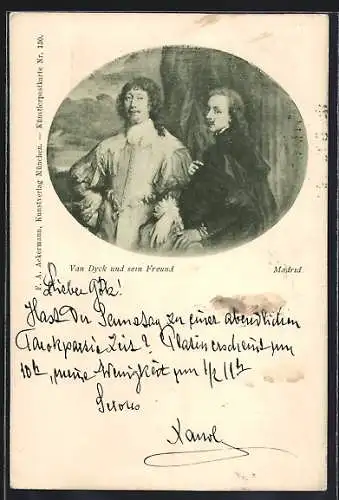 F. A. Ackermann, Kunstverlag München. — Künstlerpostkarte Nr. 130.
Van Dyck und sein Freund
Madrid.
Lieber
Hast Du Samstag zu einer abendlichen
Tarokpartie Zeit? Platin erscheint um
10h, meine Wenigkeit um 1/2 11h